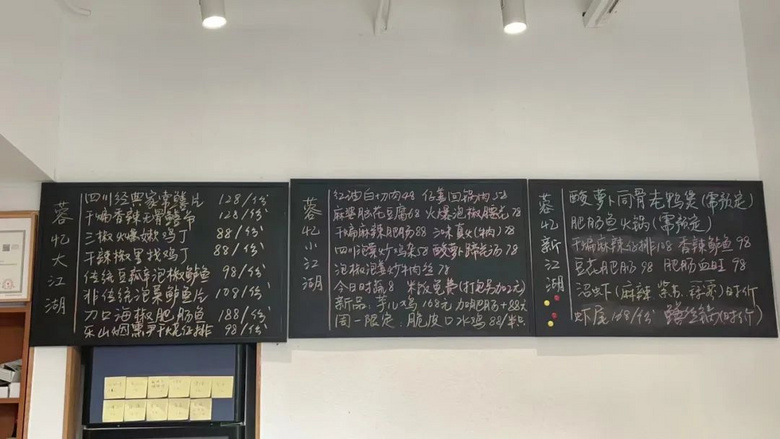 蓉忆大江湖
四川经典家常鳝片 128/份
干煸香辣无骨鳝布 128/份
三椒火爆嫩鸡丁 88/份
干辣椒里找鸡丁 88/份
传统豆瓣泡椒鲈鱼 98/份
非传统泡菜鲈鱼片 108/份
刀口海椒肥肠鱼 188/份
乐山烟熏 排 98/份
蓉忆小江湖
红油白切肉48 仔姜回锅肉58
麻婆脑花豆腐68 火爆泡椒腰花78
干煸麻辣肥肠88 三味真火(牛肉)78
四川泡菜炒鸡杂58 酸萝卜蹄花汤78
泡椒泡姜炒牛肉丝78
今日时蔬8 米饭免费(打包另加2元)
新品:芋儿鸡168元 加肥肠+88元
周一限定:脆皮口水鸡88/半只
蓉忆新江湖
酸萝卜筒骨老鸭煲(需预定)
肥肠鱼火锅(需预定)
干煸麻辣 排108 香辣鲈鱼98
豆花肥肠98 肥肠血旺98
沼虾(麻辣 紫苏 蒜蓉)时价
虾尾108/份 (时价)